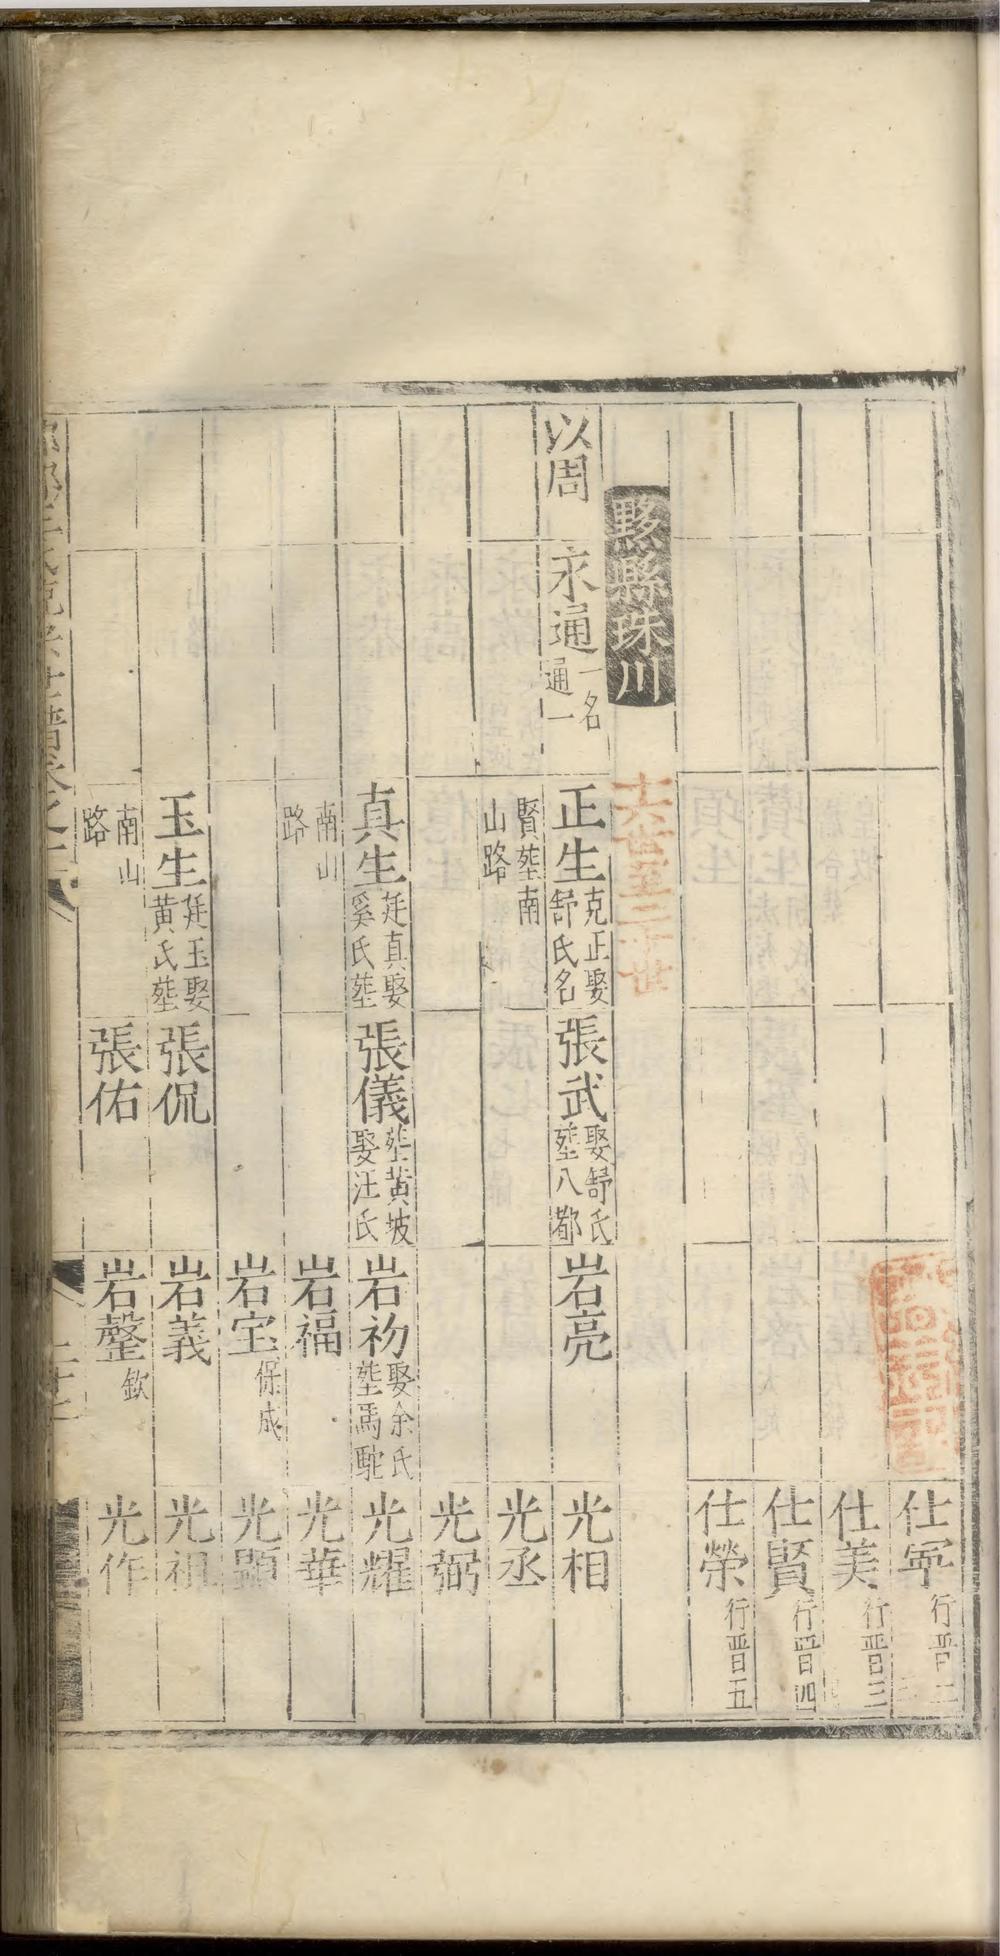 仕寧 行晋二
仕美 行晋三
仕賢 行晋四
仕榮 行晋五
黟縣珠川 十六世至二十世
以周 永通 一名通一 正生 克正娶舒氏名 張武 娶舒氏塟八都 岩亮 光相
賢塟南山路 光丞
光弼
真生 廷真娶奚氏塟 張儀 塟黄坡娶汪氏 岩初 娶余氏塟馬駝 光耀
南山路 岩福 光華
岩宝 保成 光顯
玉生 廷玉娶黄氏塟 張侃 岩義 光祖
南山路 張佑 岩罄 欽 光作